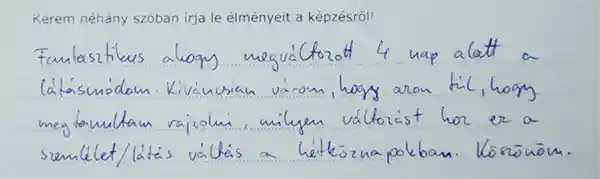 Kérem néhány szóban írja le élményeit a képzésről!
Fantasztikus ahogy megváltozott 4 nap alatt a
látásmódom. Kíváncsian várom, hogy azon túl, hogy
megtanultam rajzolni, milyen változást hoz ez a
szemlélet/látás váltás a hétköznapokban. Köszönöm.